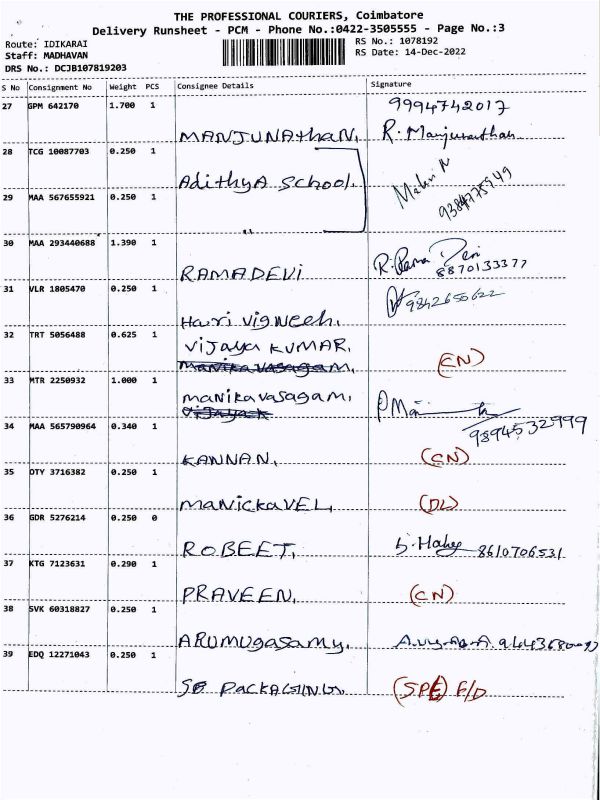 THE PROFESSIONAL COURIERS, Coimbatore
Delivery Runsheet - PCM - Phone No.:0422-3505555 - Page No.:3
Route: IDIKARAI
Staff: MADHAVAN
DRS No.: DCJB107819203
RS No.: 1078192
RS Date: 14-Dec-2022
S No Consignment No Weight PCS Consignee Details Signature
27 GPM 642170 1.700 1 MANJUNAthAN. 9994742017
R. Manjunathan
28 TCG 10087703 0.250 1 AdithyA School.
29 MAA 567655921 0.250 1 9384775949
30 MAA 293440688 1.390 1 RAMADEVI R. Rama Devi
8870133377
31 VLR 1805470 0.250 1 Hari Vigneeh. 9842650622
32 TRT 5056488 0.625 1 Vijaya KUMAR. (CN)
33 MTR 2250932 1.000 1 manikavasagam.
34 MAA 565790964 0.340 1 KANNAN. (CN)
9894532999
35 OTY 3716382 0.250 1 MANickAVEL. (DL)
36 GDR 5276214 0.250 0 ROBEET. 8610706531
37 KTG 7123631 0.290 1 PRAVEEN. (CN)
38 SVK 60318827 0.250 1 ARUMUgASAmy.
39 EDQ 12271043 0.250 1 PACKAGING. F/D